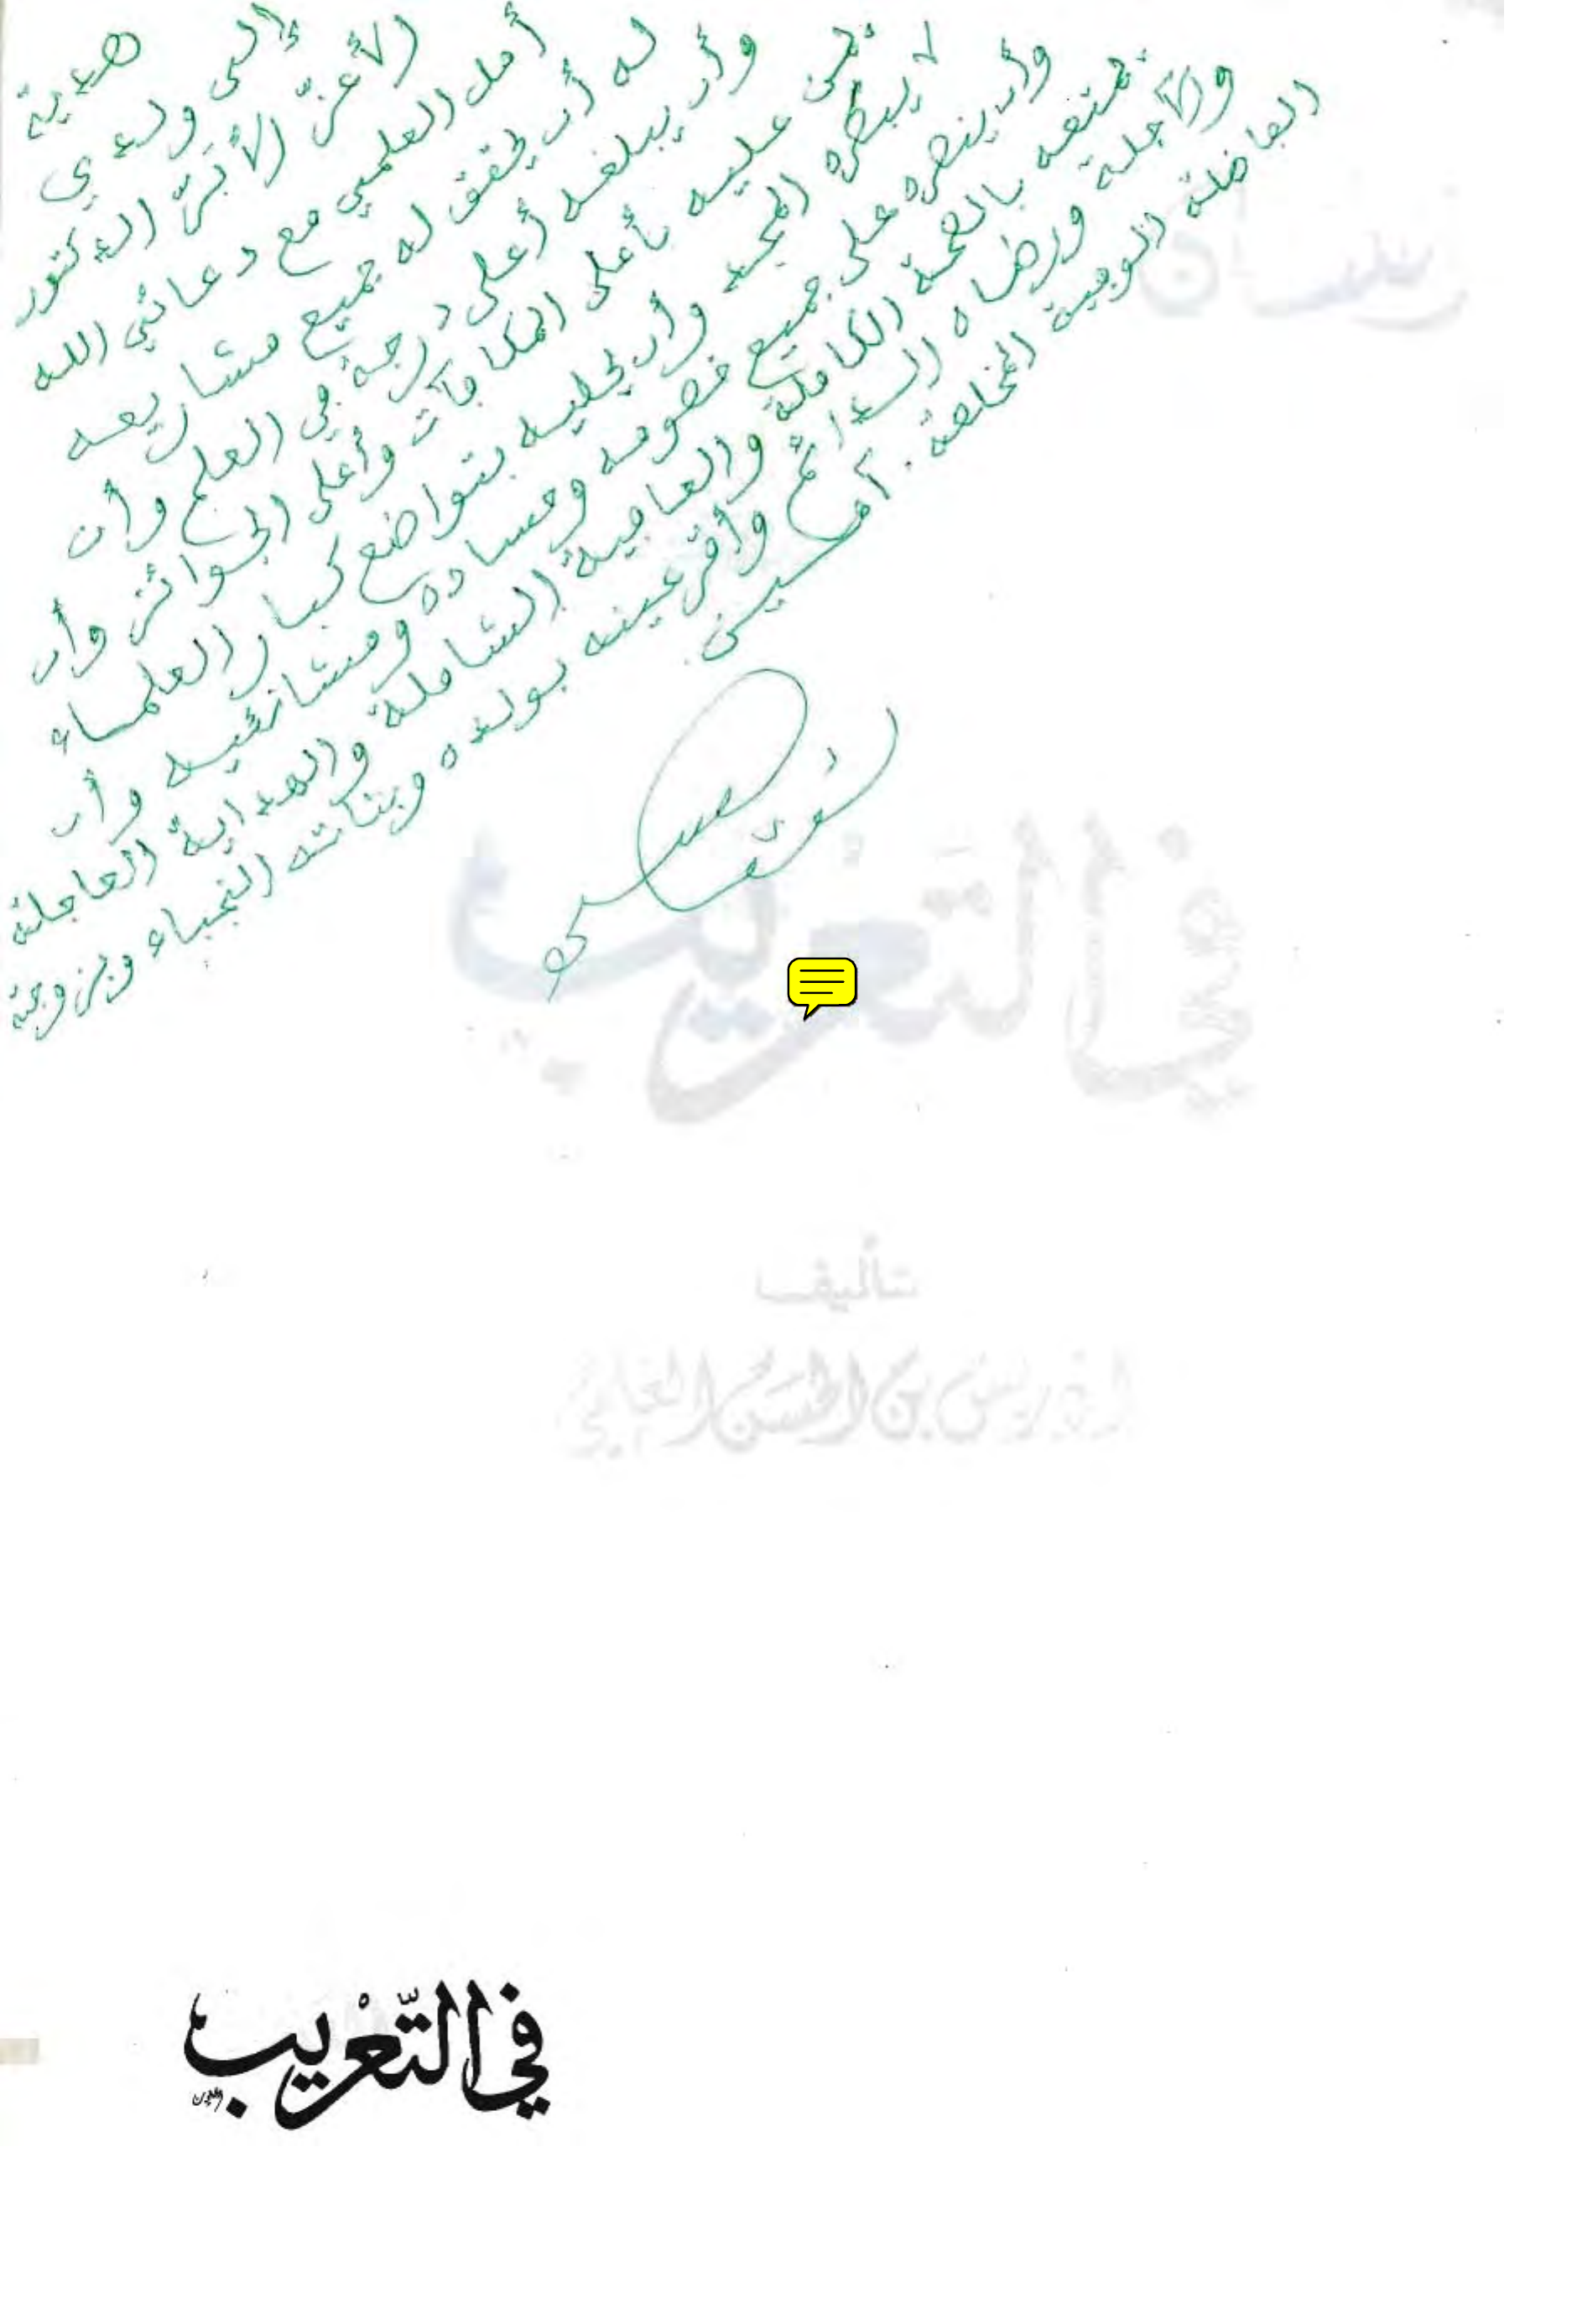 هدية
إلى ولدي
الأعزّ الأبرّ الدكتور
أمل العلمي مع دعائي الله
له أن يحقق له جميع مشاريعه
وأن يبلغه أعلى درجة في العلم وأن
يمن عليه بأعلى المكافآت وأعلى الجوائز وأن
لا يبطره المجد وأن يحليه بتواضع كبار العلماء
وأن ينصره على جميع خصومه وحساده ومشانئيه وأن
يمتعه بالصحة الكاملة والعافية الشاملة والهداية العاجلة
والآجلة ورضاه الدائم وأقر عينه بولده وبناته النجباء وبزوجته
الفاضلة الوفية المخلصة. آمين.
في التعريب
تأليف
إدريس بن الحسن العلمي
في التّعْريب